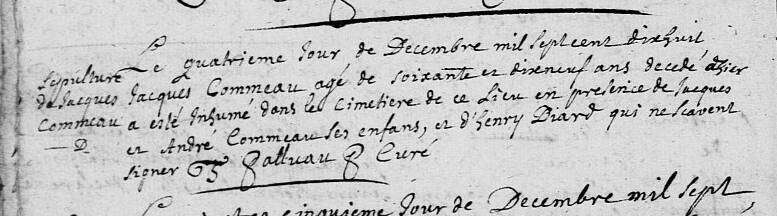 Le quatrieme Jour de Decembre mil sept cent dixhuit
sepulture
de Jacques
Commeau
D
Jacques Commeau agé de soixante et dixneuf ans decedé dhier
a esté Inhumé dans le Cimetiere de ce Lieu en presence de Jacques
et André Commeau ses enfans, et d'henry Diard qui ne scavent
signer Galluau Curé
jour de Decembre mil sept